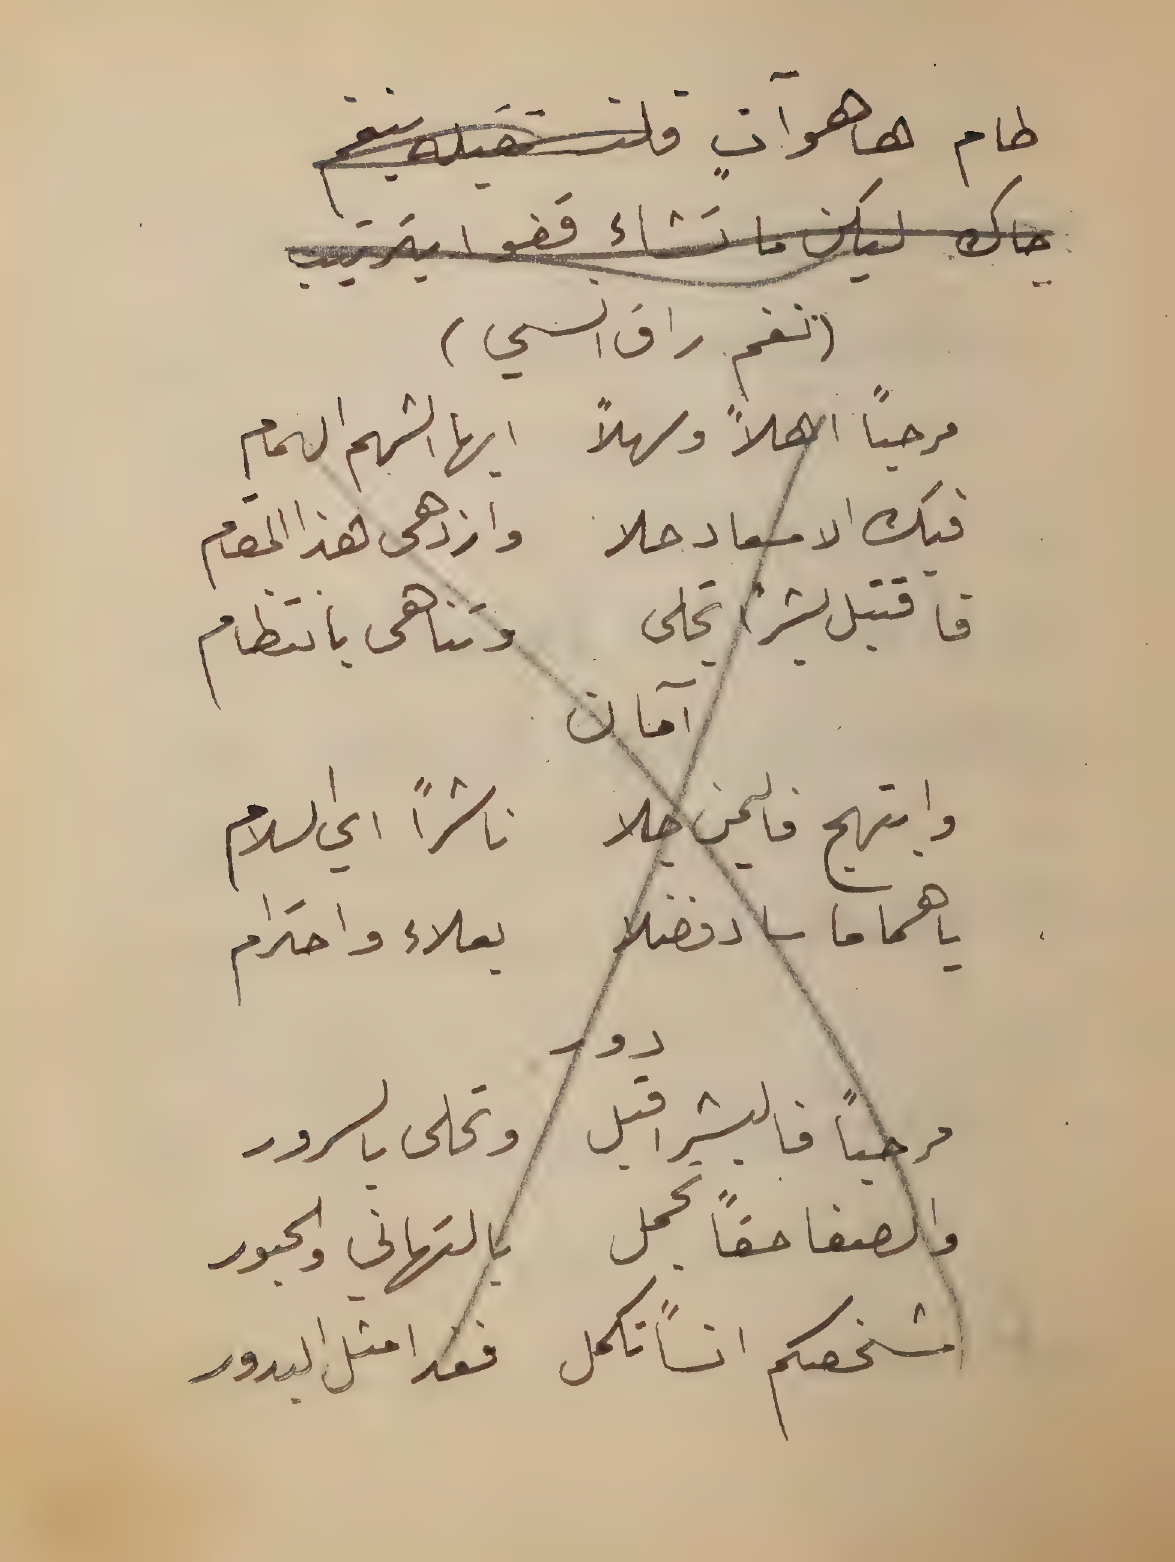 طام هاهو آتٍ قلت نقيله بنغم
جاك ليكن ما تشاء قفوا بترتيب
(نغم راق انسي)
مرحباً اهلاً وسهلاً ايها الشهم الهمام
فيك الاسعاد حلا وازدهى لهذا المقام
فاقتبل بشرا تحلى وتناهى بانتظام
آمان
وابتهج فاليمن جلا ناشراً اي السلام
ياهماما ساد فضلا بعلاء واحترام
دور
مرحباً فالبشر اقبل وتحلى بالسرور
والصفا حقاً تجمل بالتهاني والحبور
شخصكم انساً تكمل فغدا مثل البدور